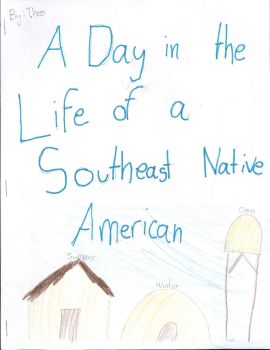 By: Theo
A Day in the
Life of a
Southeast Native
American
Summer
Winter
Corn